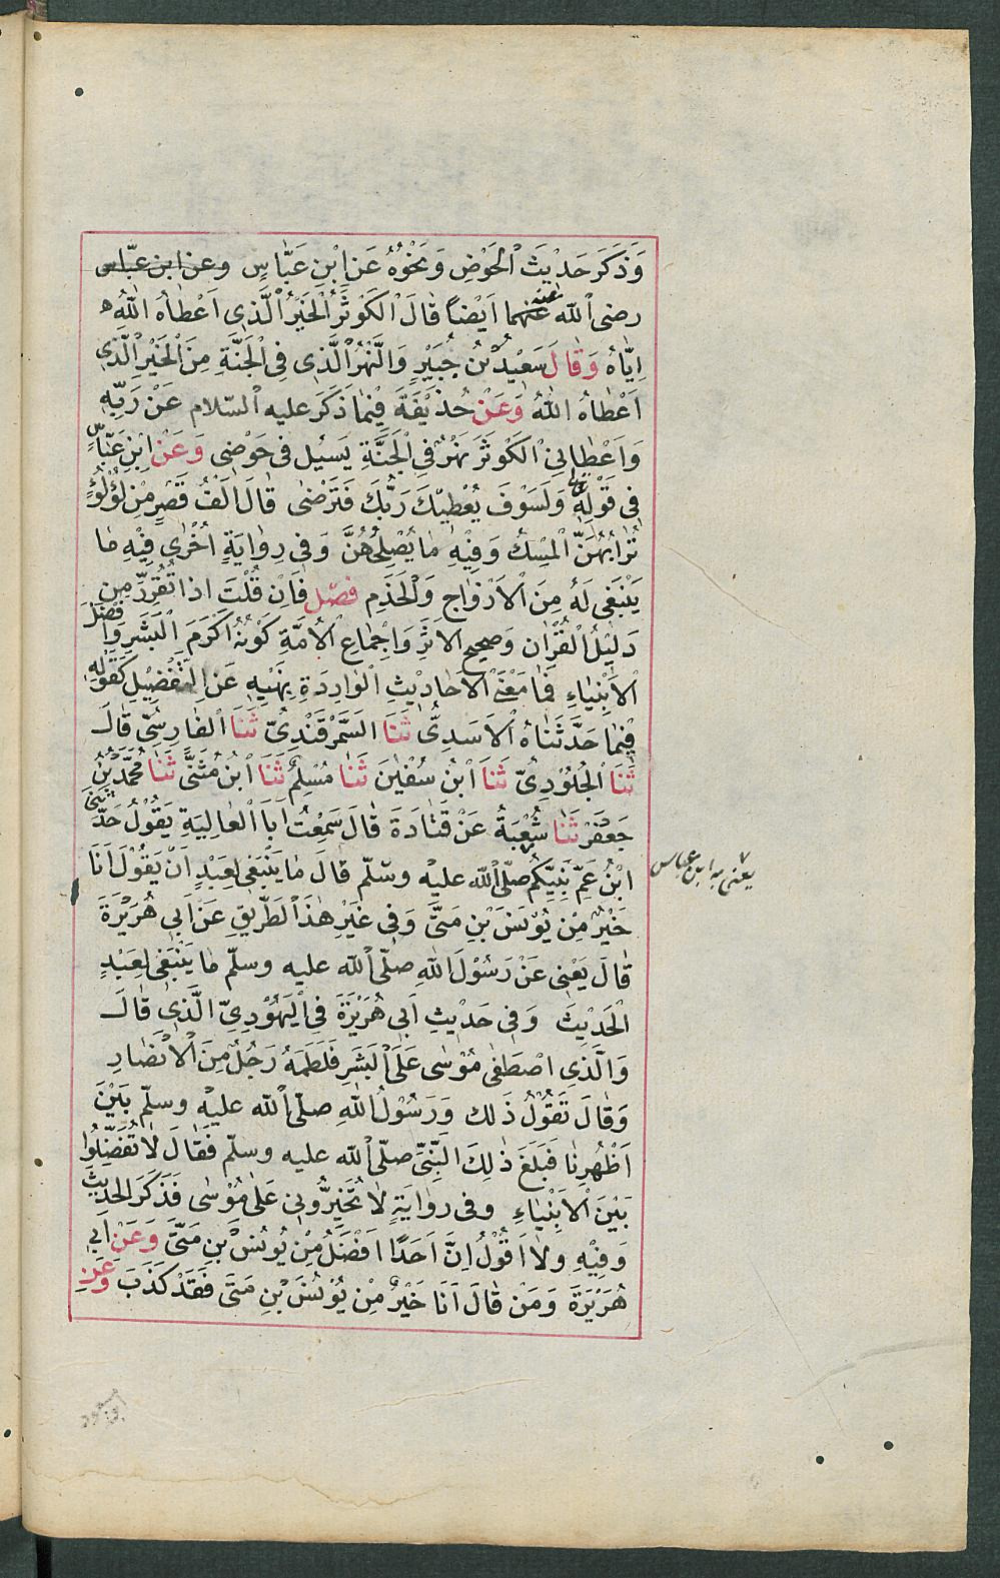 وَذَكَرَ حَدِيثَ الْحَوْضِ وَنَحْوُهُ عَنِ ابْنِ عَبَّاسٍ وعن ابن عبّاس
رضى الله عنهما عنه اَيْضاً قَالَ الْكَوْثَرُ الْخَيْرُ الَّذِى اَعْطَاهُ اللهُ
اِيَّاهُ وَقَالَ سَعِيْدُ بْنُ جُبَيْرٍ وَالنَّهْرُ الَّذِى فِى الْجَنَّةِ مِنَ الْخَيْرِ الَّذِى
اَعْطَاهُ اللهُ وَعَنْ حُذَيْفَةَ فِيْمَا ذَكَرَ عليه السّلام عَنْ رَبِّهِ
وَاَعْطَانِى الْكَوْثَرَ نَهْرٌ فِى الْجَنَّةِ يَسِيْل فى حَوْضِى وَعَنْ اِبْنِ عَبَّاسٍ
فِى قَوْلِهِ تعالى وَلَسَوْفَ يُعْطِيْكَ رَبُّكَ فَتَرْضٰى قَالَ اَلْفُ قَصْرٍ مِنْ لُؤْلُؤٍ
تُرَابُهُنَّ الْمِسْكُ وَفِيْهِ مَا يُصْلِحُهُنَّ وَفِى رِوَايَةٍ اُخْرٰى فِيْهِ مَا
يَنْبَغِى لَهُ مِنَ الْاَزْوَاجِ وَالْخَدَمِ فَصْل فَاِنْ قُلْتَ اذا تَقَرَّرَ مِن
دَلِيْلِ الْقُرْاٰنِ وَصَحِيحِ الْاَثَرِ وَاِجْمَاعِ الْاُمَّةِ كَوْنُهُ اَكْرَمَ الْبَشَرِ وَافْضَلَ
الْاَنْبِيَاءِ فَمَا مَعْنَى الْاَحَادِيْثِ الْوَارِدَةِ بِنَهْيِهِ عَنِ التَّفْضِيْلِ كَقَوْلِهِ
فِيْمَا حَدَّثَنَاهُ الْاَسَدِىُّ ثَنَا السَّمَرْقَنْدِىّ ثَنَا الْفَارِسِىّ قَالَ
ثَنَا الْجُلُوْدِىّ ثَنَا ابْنُ سُفْيٰنَ ثَنَا مُسْلِمٌ ثَنَا ابْنُ مُثَنًّى ثَنَا مُحَمَّدُ بْنُ
جَعْفَرٍ ثَنَا شُعْبَةُ عَنْ قَتَادَةَ قَالَ سَمِعْتُ اَبَا الْعَالِيَةِ يَقُوْلُ حَدَّثَنِى
ابْنُ عَمِّ نَبِيِّكُم صلّى الله عليه وسلّم قَالَ مَا يَنْبَغِى لِعَبْدٍ اَنْ يَقُوْلَ اَنَا
يعنى به ابن عباس
خَيْرٌ مِنْ يُوْنُسَ بْنِ مَتَّى وَفِى غَيْرِ هٰذَا الطَّرِيقِ عَنْ اَبِى هُرَيْرَةَ
قَالَ يَعْنِى عَنْ رَسُوْلَ اللهِ صلّى الله عليه وسلّم مَا يَنْبَغِى لِعَبْدٍ
الْحَدِيْثَ وَفِى حَدِيْثِ اَبِى هُرَيْرَةَ فِى الْيَهُوْدِىّ الَّذِى قَالَ
وَالَّذِى اصْطَفٰى مُوْسٰى عَلَى الْبَشَرِ فَلَطَمَهُ رَجُلٌ مِنَ الْاَنْصَارِ
وَقَالَ تَقُوْلُ ذَلك وَرَسُوْلُ اللهِ صلّى الله عليه وسلّم بَيْنَ
اَظْهُرِنَا فَبَلَغَ ذٰلِكَ النَّبِىَّ صلّى الله عليه وسلّم فَقَالَ لَا تُفَضِّلُوا
بَيْنَ الْاَنْبِيَاءِ وفى رِوَايَةٍ لَا تُخَيِّرُوْنِى عَلٰى مُوْسٰى فَذَكَرَ الْحَدِيْثَ
وَفِيْهِ وَلَا اَقُوْلُ اِنَّ اَحَدًا اَفْضَلُ مِنْ يُوْنُسَ بْنِ مَتَّى وَعَنْ اَبِى
هُرَيْرَةَ وَمَنْ قَالَ اَنَا خَيْرٌ مِنْ يُوْنُسَ بْنِ مَتَّى فَقَدْ كَذَبَ
وَعَنِ